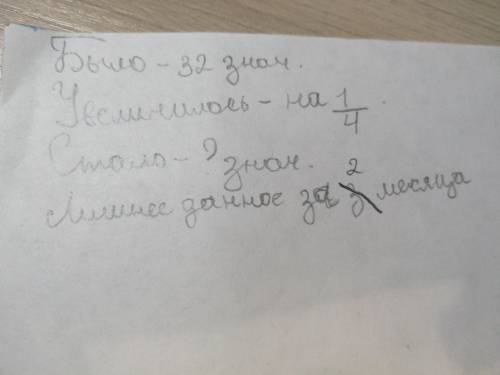 Было - 32 знач.
Увеличилось - на 1/4.
Стало - ? знач.
Лишнее данное за 2 месяца